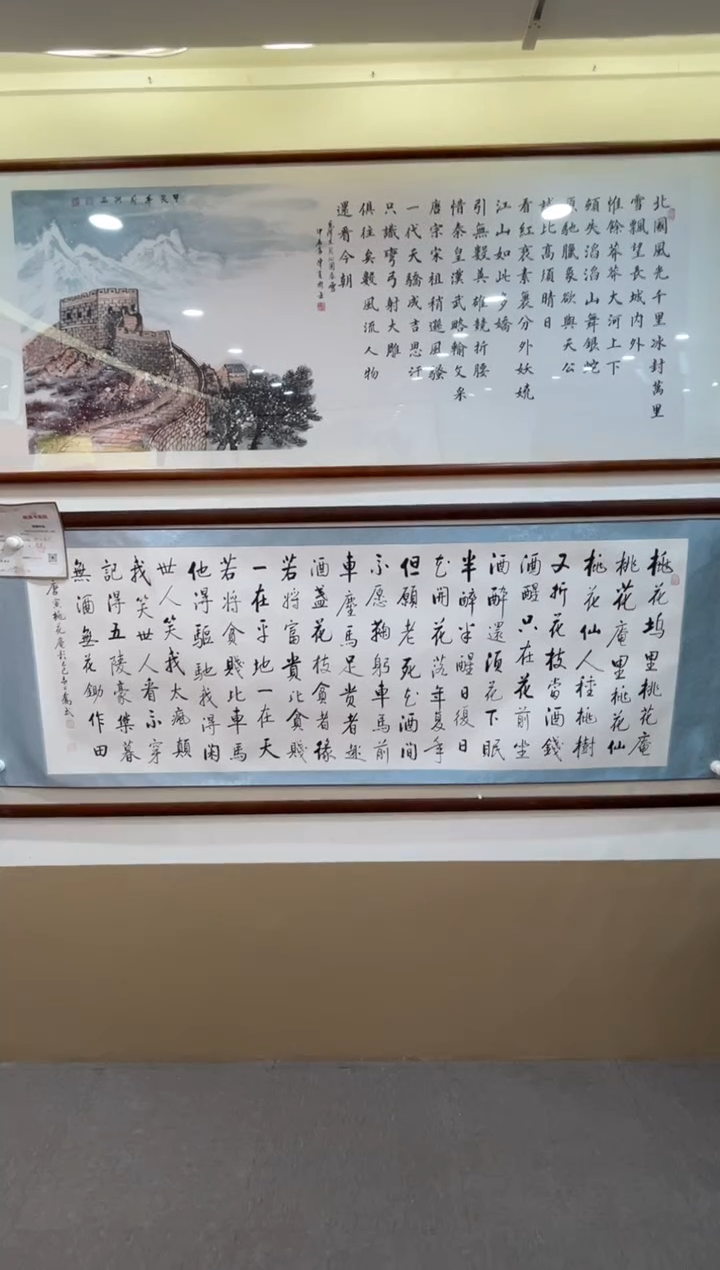 北國風光千里冰封萬里
雪飄望長城內外
惟餘莽莽大河上下
頓失滔滔山舞銀蛇
原馳臘象欲與天公
比高須晴日
看紅裝素裹分外妖嬈
江山如此多嬌
引無數英雄競折腰
惜秦皇漢武略輸文采
唐宗宋祖稍遜風騷
一代天驕成吉思汗
只識彎弓射大雕
俱往矣數風流人物
還看今朝
桃花塢里桃花庵
桃花庵里桃花仙
桃花仙人種桃樹
又折花枝當酒錢
酒醒只在花前坐
酒醉還須花下眠
半醉半醒日復日
花開花落年復年
但願老死花酒間
不愿鞠躬車馬前
車塵馬足貴者趣
酒盞花枝貧者緣
若將富貴比貧賤
一在平地一在天
若將貧賤比車馬
他得驅馳我得閑
世人笑我太瘋顛
我笑世人看不穿
記得五陵豪樂墓
無酒無花鋤作田
唐寅桃花庵